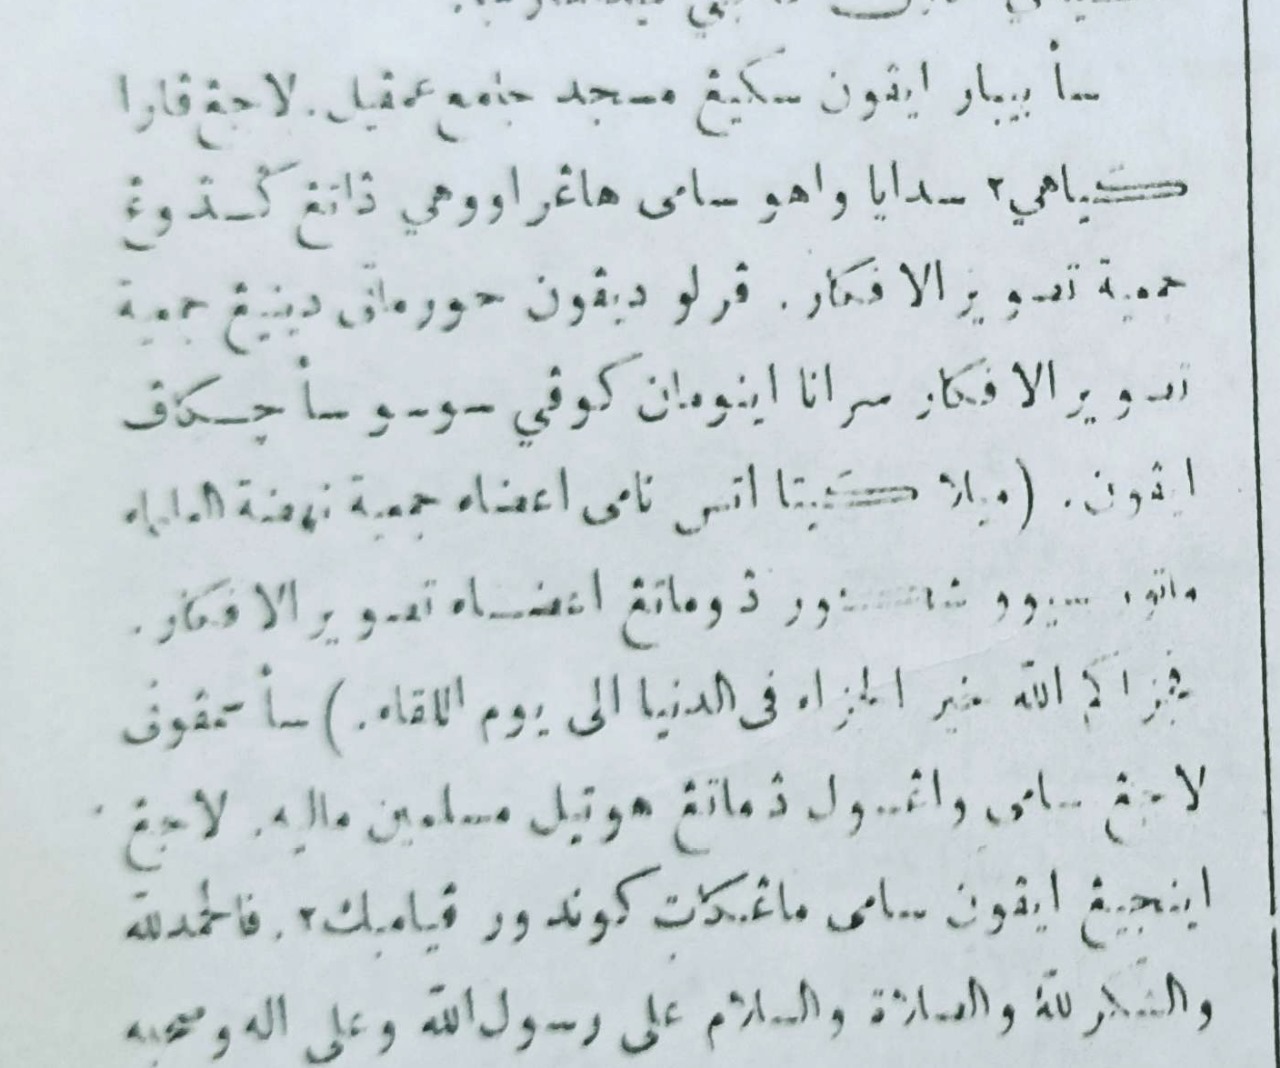 سأ بيبار ايڤون سكيڠ مسجد جامع عمڤيل. لاجڠ ڤارا
كياهي٢ سدايا واهو سامى هاڠراووهي داتڠ ڮدوڠ
جمعية تصوير الافكار. ڤرلو ديڤون حورماتى دينيڠ جمعية
تصوير الافكار سرانا اينومان كوڤي سوسو سأچكاڤ
ايڤون. (ميلا كيتا اتس نامى اعضاء جمعية نهضة العلماء
ماتور سيوو نوون دوماتڠ اعضاء تصوير الافكار.
فجزاكم الله خير الجزاء فى الدنيا الى يوم اللقاء.) سأ مڤون
لاجڠ سامى واڠسول دماتڠ هوتيل مسلمين ماليه. لاجڠ
اينجيڠ ايڤون سامى ماڠكات كوندور ڤيامبك٢. فالحمد لله
والشكر لله والصلاة والسلام على رسول الله وعلى اله وصحبه